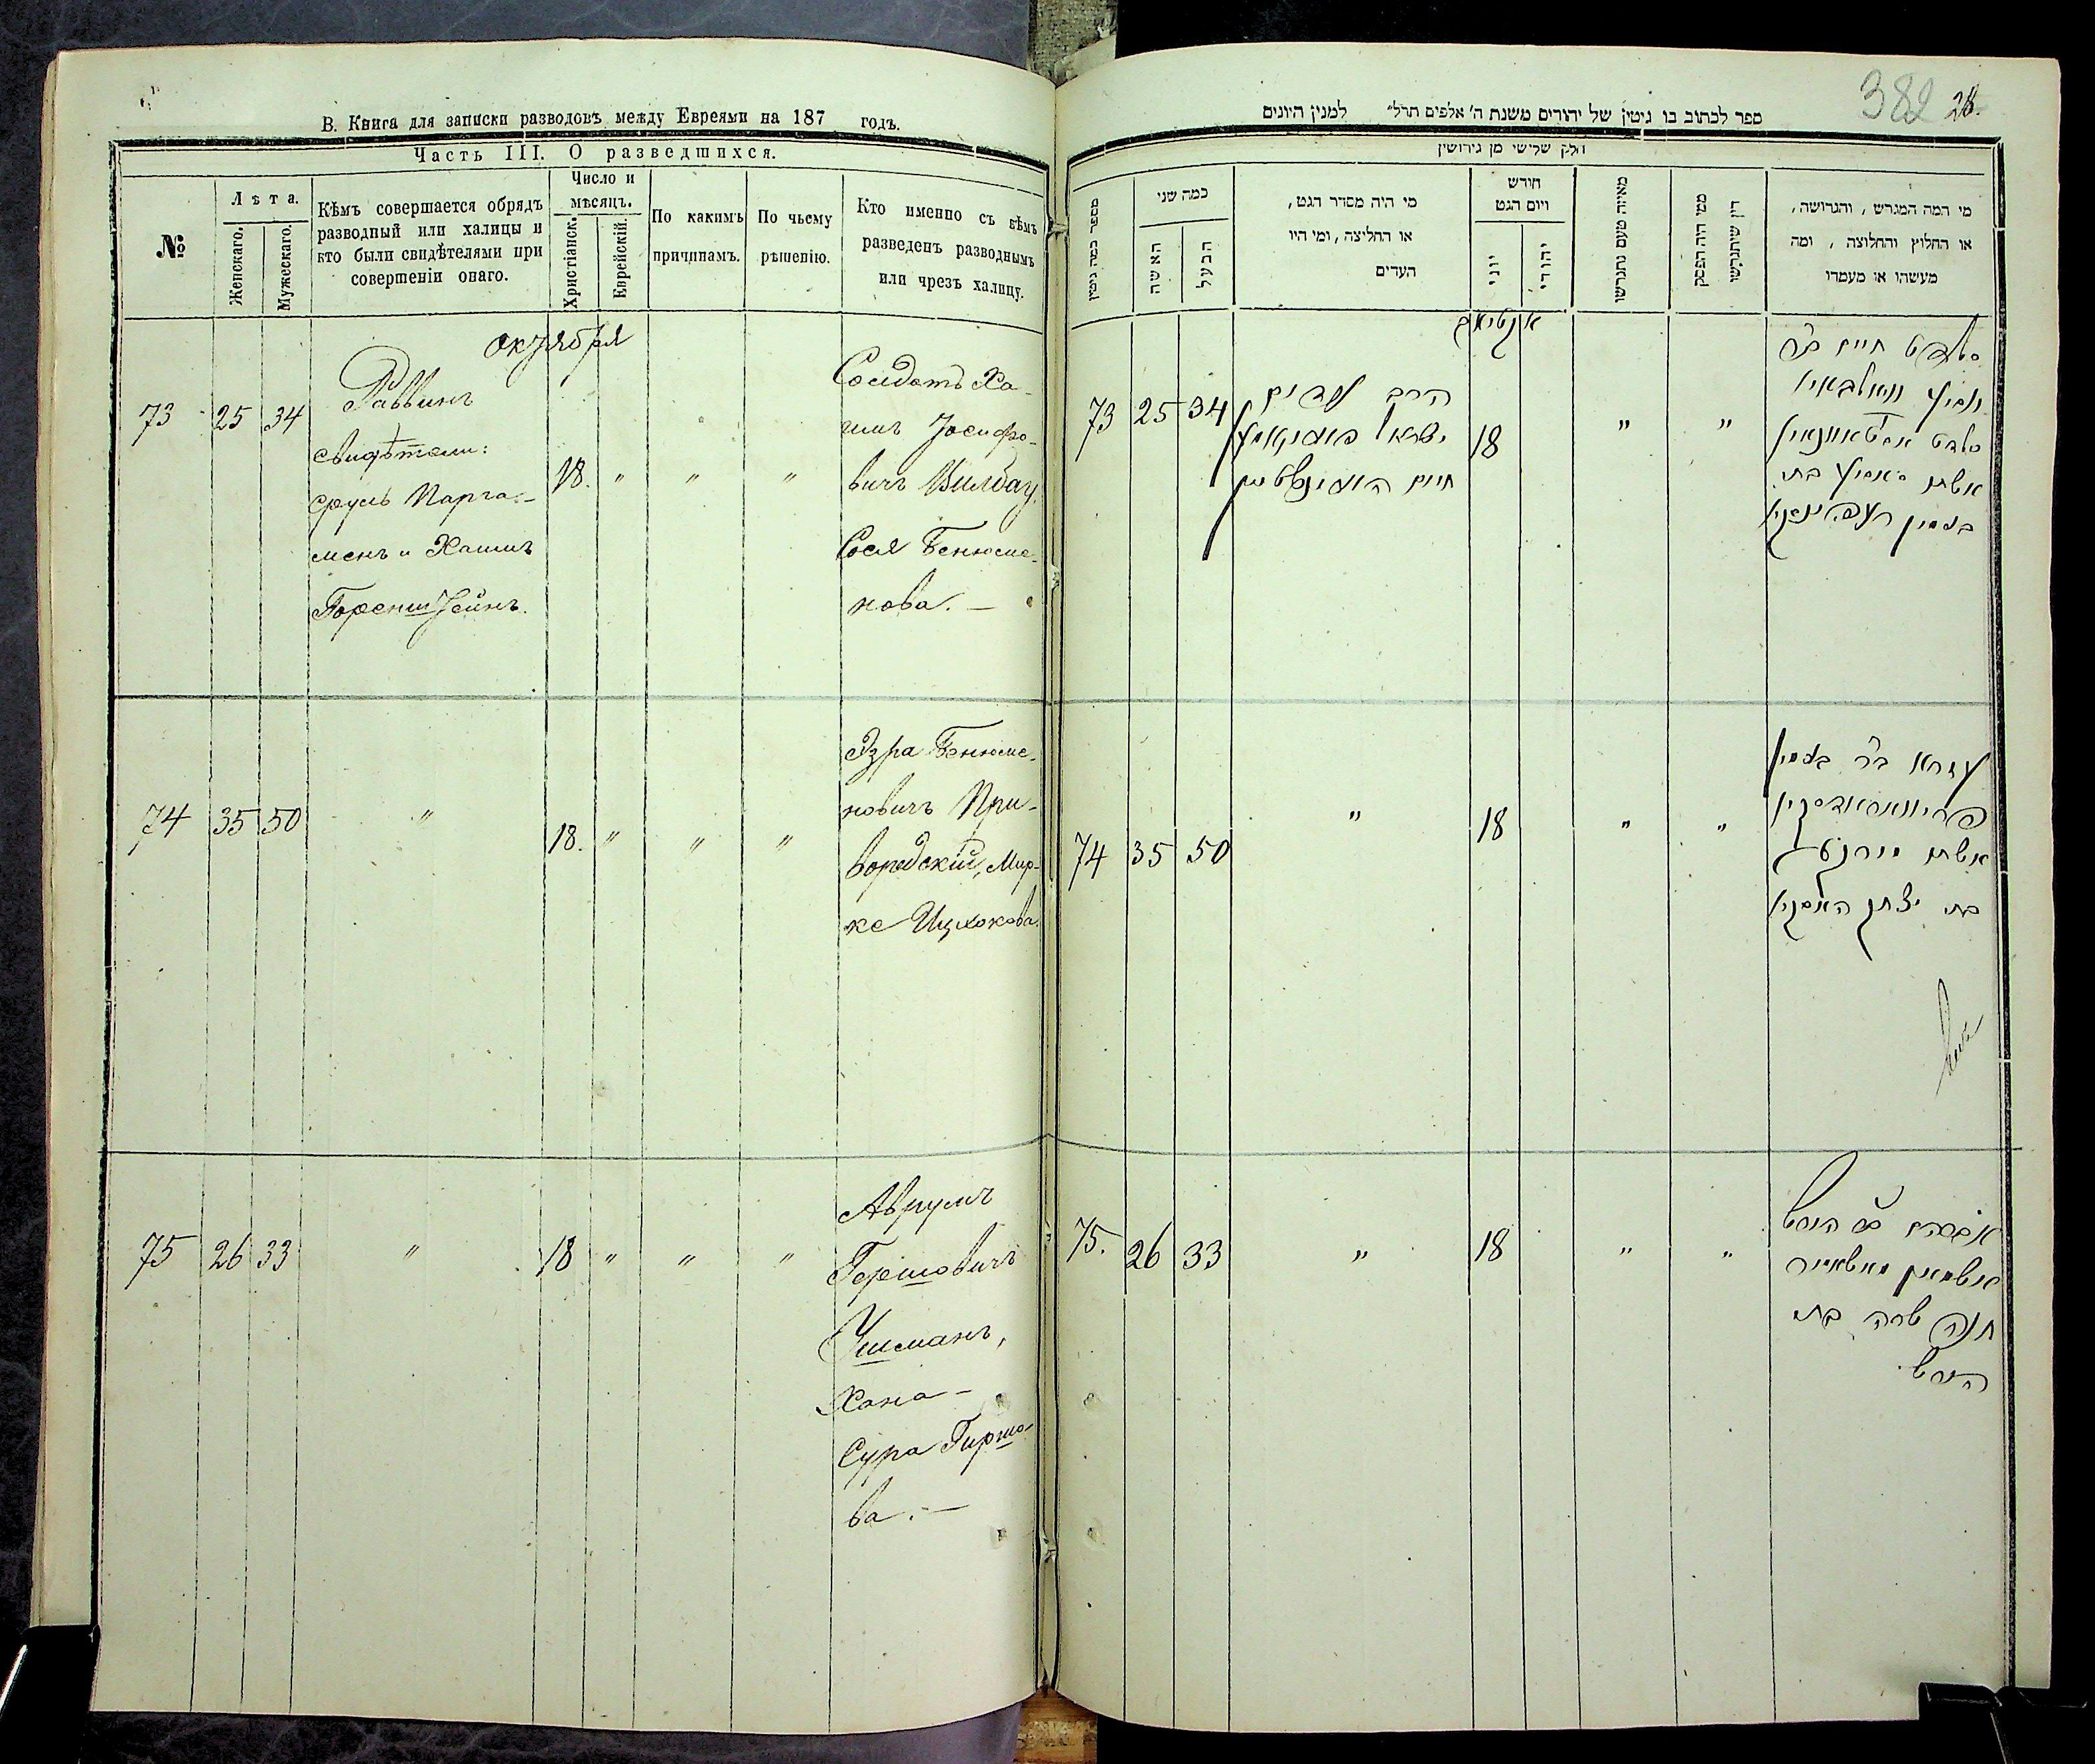 В. Книга для записки разводовъ между Евреями на 187 годъ.
Часть III. О разведшихся.
№
Лѣта.
Женскаго.
Мужескаго.
Кѣмъ совершается обрядъ
разводный или халицы и
кто были свидѣтелями при
совершеніи онаго.
Число и
мѣсяцъ.
Христіанск.
Еврейскій.
По какимъ
причинамъ.
По чьему
рѣшенію.
Кто именно съ кѣмъ
разведенъ разводнымъ
или чрезъ халицу.
октября
73 25 34
Раввинъ
свидѣтели:
Срулъ Парга-
менъ и Хаимъ
Горенштейнъ.
18. " " "
Солдатъ Ха-
имъ Іосифо-
вичъ Вилбау,
Сося Бенюме-
нова. —
74 35 50 " 18. " " "
Эзра Бенюме-
новичъ При-
вородскій, Мир-
ке Ицхокова.
75 26 33 " 18 " " "
Аврумъ
Гершовичъ
Ушманъ,
Хана-
Сура Гиршо-
ва. —
382 28.
ספר לכתוב בו גיטין של יהודים משנת ה' אלפים תרל" למנין היונים
חלק שלישי מן גירושין
מספר כמה גיטין
כמה שני
האשה
הבעל
מי היה מסדר הגט,
או החליצה, ומי היו
העדים
חודש
ויום הגט
יוני
יהודי
מאיזה טעם נתגרשו
ממי היה הפסק
דין שיתגרשו
מי המה המגרש, והגרושה,
או החלוץ והחלוצה, ומה
מעשהו או מעמדו
73 25 34
הרב עדים
ישראל
חיים
18 " "
חיים ב"ר
אשתו
בת
74 35 50 " 18 " "
עזרא ב"ר בנימין
אשתו
בת יצחק
75. 26 33 " 18 " "
אברהם ב"ר הירש
חנה שרה בת
הירש